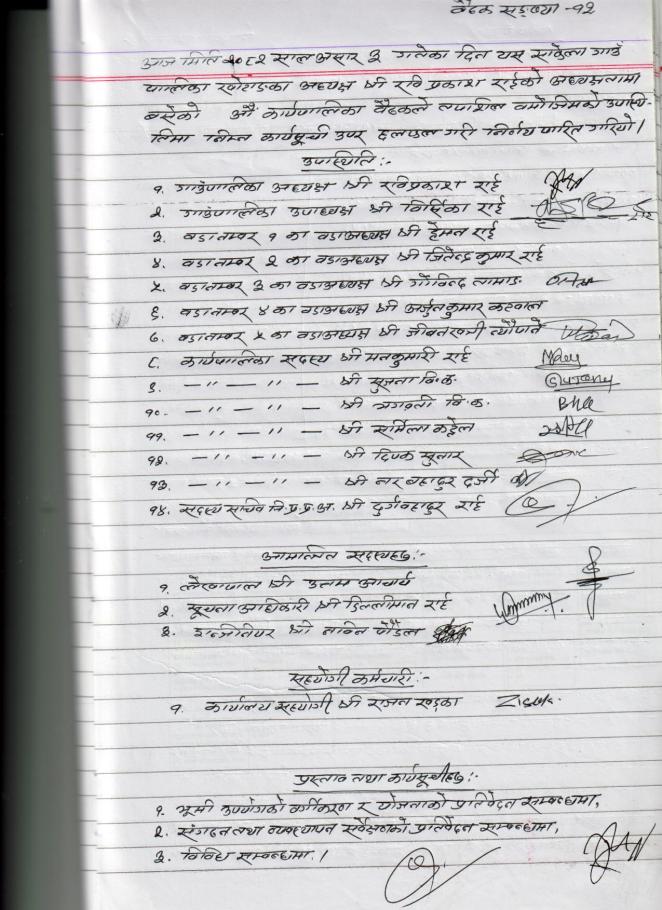 बैठक सङ्ख्या -१२
आज मिति २०८२ साल असार ३ गतेका दिन यस साकेला गाउँ
पालिका खोटाङका अध्यक्ष श्री रवि प्रकाश राईको अध्यक्षतामा
बसेको औं कार्यपालिका बैठकले तपाशिल बमोजिमको उपस्थि-
तिमा निम्न कार्यसूची उपर छलफल गरी निर्णय पारित गरियो।
उपस्थिति :-
१. गाउँपालिका अध्यक्ष श्री रविप्रकाश राई
२. गाउँपालिका उपाध्यक्ष श्री राई
३. वडा नम्बर १ का वडाअध्यक्ष श्री हेमन्त राई
४. वडा नम्बर २ का वडाअध्यक्ष श्री जितेन्द्र कुमार राई
५. वडा नम्बर ३ का वडाअध्यक्ष श्री गोविन्द तामाङ
६. वडा नम्बर ४ का वडाअध्यक्ष श्री अर्जुन कुमार
७. वडा नम्बर ५ का वडाअध्यक्ष श्री जीवन खत्री
८. कार्यपालिका सदस्य श्री मनकुमारी राई
९. –〃–〃– श्री सुजता वि.क.
१०. –〃–〃– श्री भगवती वि.क.
११. –〃–〃– श्री सर्मिला कट्टेल
१२. –〃–〃– श्री दिपक सुनार
१३. –〃–〃– श्री नर बहादुर दर्जी
१४. सदस्य सचिव नि.प्र.प्र.अ. श्री दुर्गबहादुर राई
आमन्त्रित सदस्यहरु :-
१. लेखापाल श्री उत्तम आचार्य
२. सूचना अधिकारी श्री राई
३. इन्जीनियर श्री नविन पौडेल
सहयोगी कर्मचारी :-
१. कार्यालय सहयोगी श्री राजन खड्का
प्रस्ताव तथा कार्यसूचीहरु :-
१. भूमी उपयोगको वर्गीकरण र योजनाको प्रतिवेदन सम्बन्धमा,
२. संगठन तथा व्यवस्थापन सर्वेक्षणको प्रतिवेदन सम्बन्धमा,
३. विविध सम्बन्धमा ।